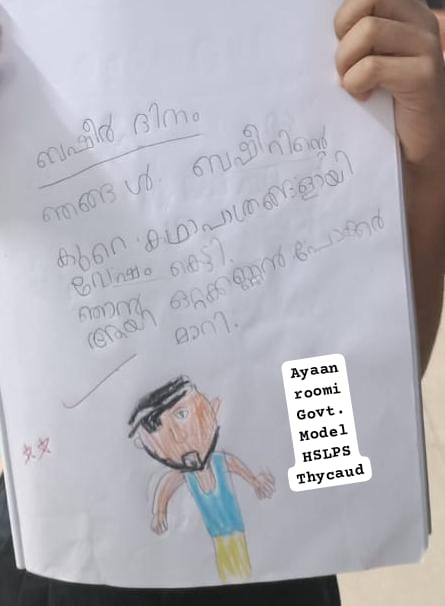 ബഷീർ ദിനം
ഞങ്ങൾ. ബഷീറിന്റെ
കുറെ കഥാപാത്രങ്ങളായി
വേഷം കെട്ടി.
ഞാൻ ഒറ്റക്കണ്ണൻ പോക്കർ
ആയി മാറി.
Ayaan
roomi
Govt.
Model
HSLPS
Thycaud